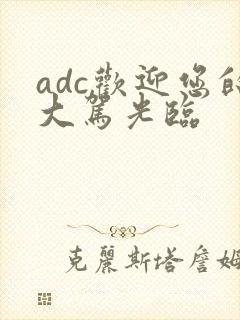 adc歡迎您的
大駕光臨
克麗斯塔詹姆